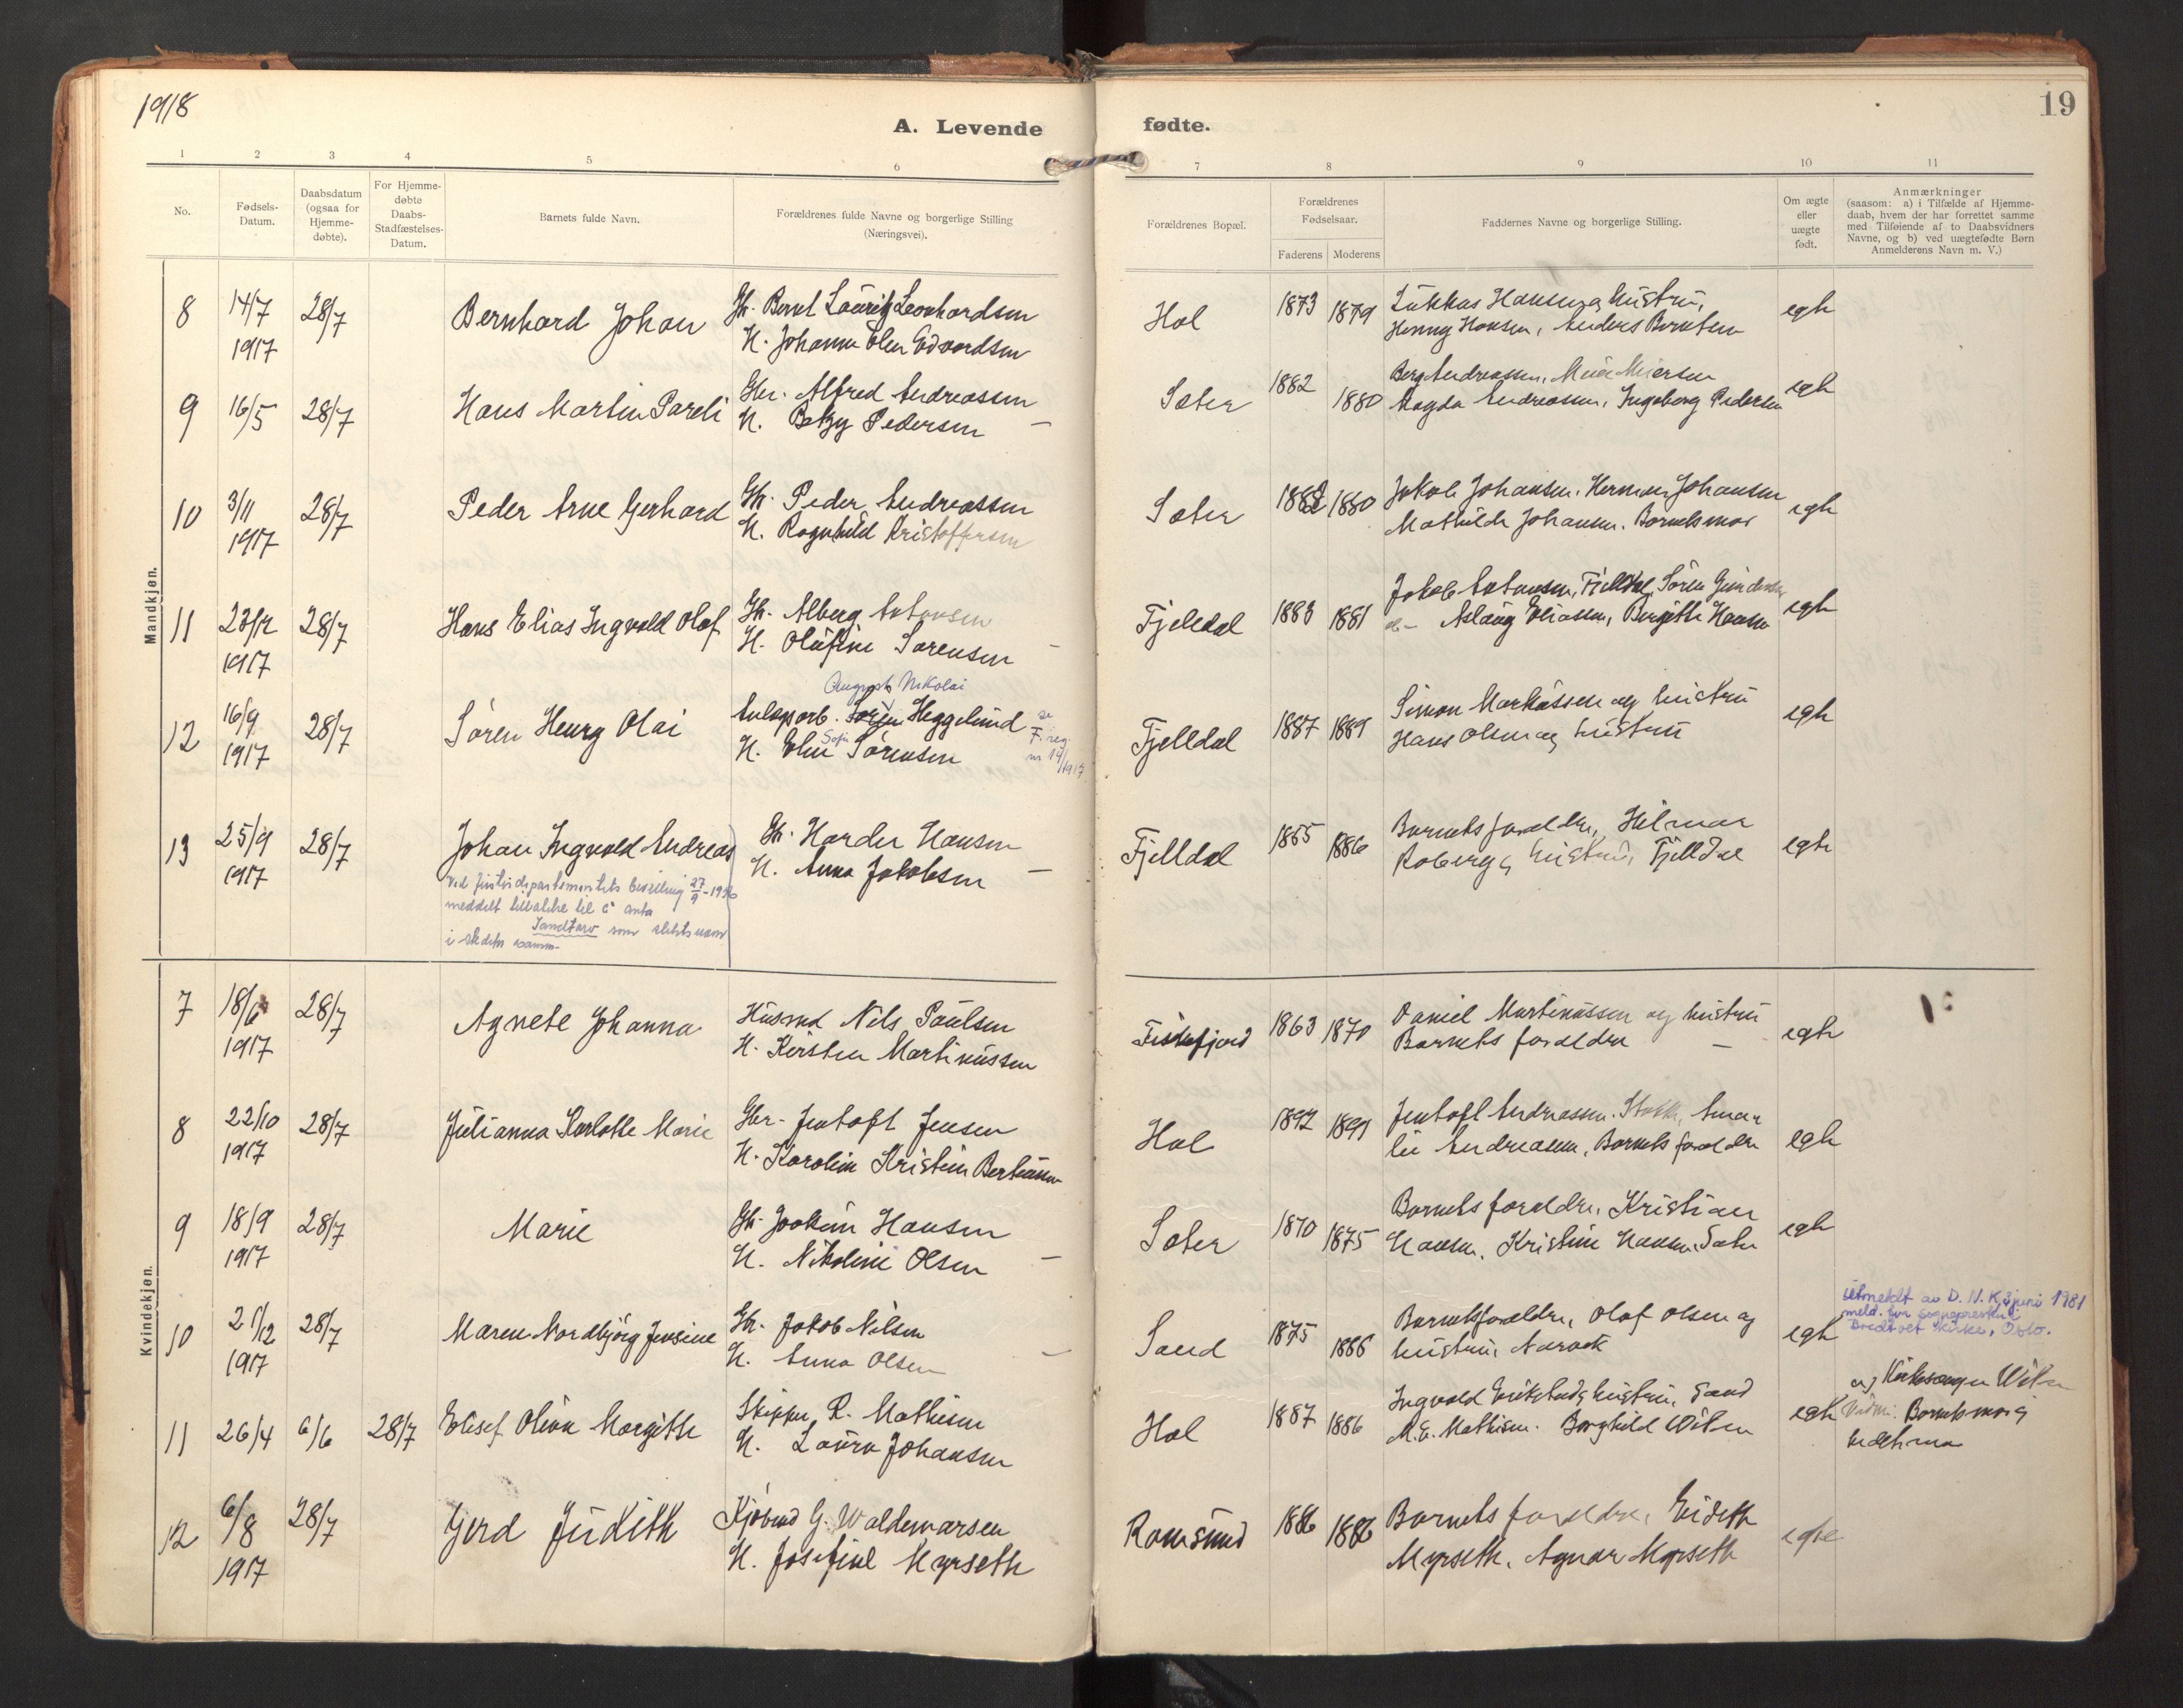 1918
19
A. Levende fødte.
1 2 3 4 5 6 7 8 9 10 11
No.
Fødsels-Datum.
Daabsdatum (ogsaa for Hjemme-døbte).
For Hjemme-døbte Daabs-Stadfæstelses-Datum.
Barnets fulde Navn.
Forældrenes fulde Navne og borgerlige Stilling (Næringsvei).
Forældrenes Bopæl.
Forældrenes Fødselsaar.
Faderens Moderens
Faddernes Navne og borgerlige Stilling.
Om ægte eller uægte født.
Anmærkninger
(saasom: a) i Tilfælde af Hjemme-
daab, hvem der har forrettet samme
med Tilføiende af to Daabsvidners
Navne, og b) ved uægtefødte Børn
Anmelderens Navn m. V.)
Mandkjøn.
8 14/7 1917 28/7 Bernhard Johan
Gbr. Bernt Lauritz Leonhardsen
H. Johanna Elen Edvardsen
Hol 1873 1879
Lukkas Hansen og hustru,
Henny Hansen, Anders Berntsen
egte
9 16/5 28/7 Hans Martin Pareli
Gbr. Alfred Andreassen
H. Betzy Pedersen
Sæter 1882 1880
Berg Andreassen, Meier Meiersen
Magda Andreassen, Ingeborg Pedersen
egte
10 3/11 1917 28/7 Peder Arne Gerhard
Gbr. Peder Andreassen
H. Ragnhild Kristoffersen
Sæter 1882 1880
Jakob Johansen, Herman Johansen
Mathilde Johansen. Barnets mor
egte
11 23/12 1917 28/7 Hans Elias Ingvald Olaf
Gbr. Alberg Antonsen
H. Olufine Sørensen
Fjeldal 1883 1881
Jakob Antonsen, Fjelldal, Søren Gundersen
Aslaug Eliassen, Bergitte Hansen
egte
12 16/9 1917 28/7 Søren Henry Olai
August Nikolai
Anlegsarb. Sørin Heggelund
Sofie
H. Elen Sørensen
se F. reg. nr 14/1917
Fjelldal 1887 1889
Simon Markussen og hustru
Hans Olsen og hustru
egte
13 25/9 1917 28/7 Johan Ingvald Andreas
Gbr. Harder Hansen
H. Anna Jakobsen
Fjelldal 1885 1886
Barnets foreldre, Hilmar
Roberg og hustru, Fjelldal
egte
Ved justisdepartementets bevilling 27/9-1936
meddelt tillatelse til å anta
Sandtorv som slektsnavn
i stedet
Kvindekjøn.
7 18/6 1917 28/7 Agnete Johanna
Husmd Nils Paulsen
H. Kirsten Martinussen
Fiskefjord 1863 1870
Daniel Martinussen og hustru
Barnets foreldre
egte
8 22/10 1917 28/7 Julianna Karlotte Marie
Gbr. Jentoft Jensen
H. Karoline Kristine Berteussen
Hol 1892 1891
Jentoft Andreassen, Amalie Andreassen, Barnets foreldre
egte
9 18/9 1917 28/7 Marie
Gbr. Joakim Hansen
H. Nikoline Olsen
Sæter 1870 1875
Barnets foreldre, Kristian
Hansen, Kristine Hansen, Sæter
egte
10 21/12 1917 28/7 Maren Nordbjørg Jensine
Gbr. Jakob Nilsen
H. Anna Olsen
Sand 1875 1886
Barnets foreldre, Olaf Olsen og
hustru, Narvik
egte
utmeldt av D.N.K. 3 juni 1981
meld. fra sognepresten i
Bredtvet kirke, Oslo.
11 26/4 6/6 28/7 Elisef Oline Margitte
Skipper R. Mathisen
H. Laura Johansen
Hol 1887 1886
Ingvald og hustru, Sand
M. E. Mathisen. Borghild Wiken
egte
av Kirkesanger Wiken
Vidne: Barnets mor og
bedstemor
12 6/8 1917 28/7 Gerd Judith
Kjøbmd G. Waldemarsen
H. Josefine Myrseth
Ramsund 1886 1886
Barnets foreldre, Eideth
Myrseth, Agnar Myrseth
egte